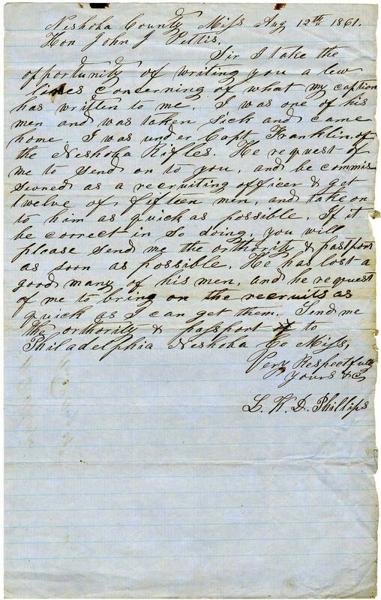 Neshoba County Miss Aug 12th 1861.
Hon John J Pettis.
Sir I take the
opportunity of writing you a few
lines concerning of what my caption
has written to me. I was one of his
men and was taken sick and came
home I was under Capt Franklin, of
the Neshoba Rifles. He request of
me to send on to you, and be commis
sioned as a recruiting officer & get
twelve of fifteen men, and take on
to him as quick as possible, If it
be correct in so doing, you will
please send me the authority & passport
as soon as possible. He has lost a
good many of his men, and he request
of me to bring on the recruits as
quick as I can get them. Send me
the orthority & passport to
Philadelphia Neshoba Co Miss,
Very Respectfully
Yours &C
L. H. D. Phillips